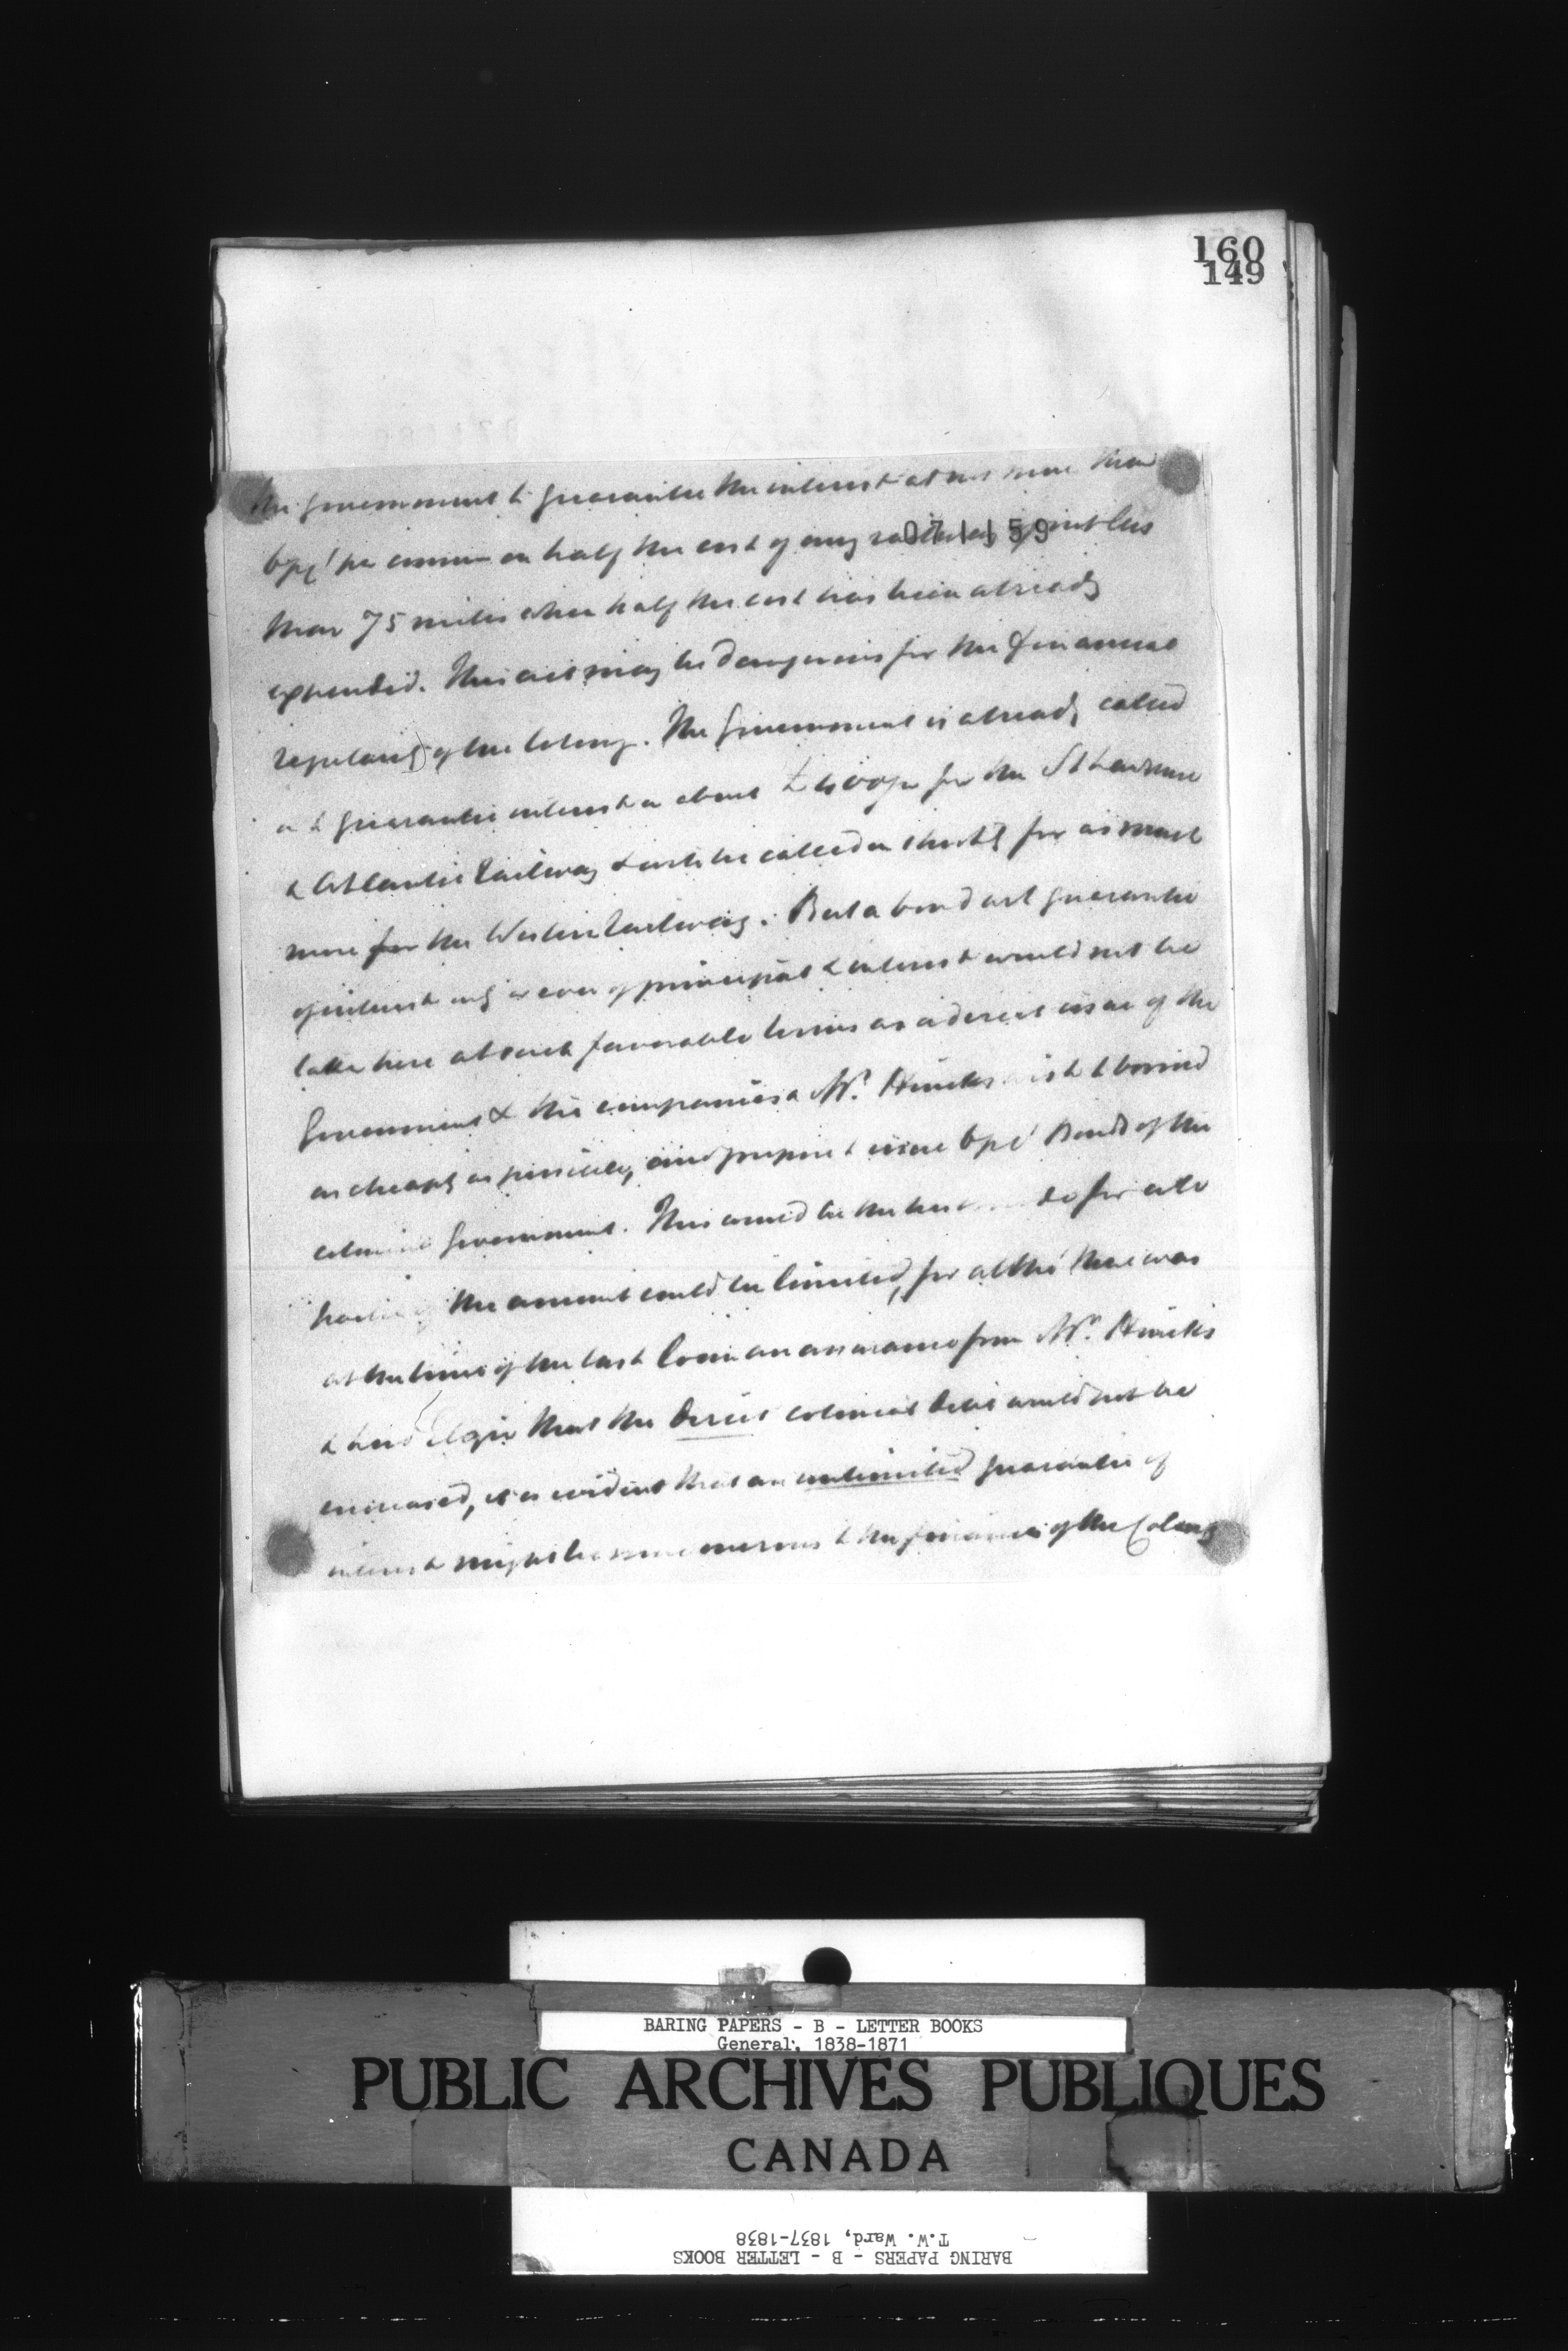 160
149
the government to guarantee the interest at not more than
071159
6 pct per annum on half the cost of any railway of not less
than 75 miles when half the cost has been already
expended. This act may be dangerous for the financial
regularity of the Colony. The Government is already called
on to guarantee interest on about £400/m for the St Lawrence
& Atlantic Railway & will be called on shortly for as much
more for the Western Railway. But a bond with guarantee
of interest only or even of principal & interest would not be
taken here at such favorable terms as a direct issue of the
Government & the companies & Mr. Hincks wish to borrow
as cheaply as possible, and propose to issue 6 pct Bonds of the
colonial Government. This would be the best for all
parties if the amount could be limited, for altho' there was
at the time of the last loan an assurance from Mr. Hincks
& Lord Elgin that the direct colonial debt would not be
increased, it is evident that an unlimited guarantee of
interest might be more onerous to the finances of the Colony
BARING PAPERS - B - LETTER BOOKS
General, 1838-1871
PUBLIC ARCHIVES PUBLIQUES
CANADA
T.W. Ward, 1837-1838
BARING PAPERS - B - LETTER BOOKS